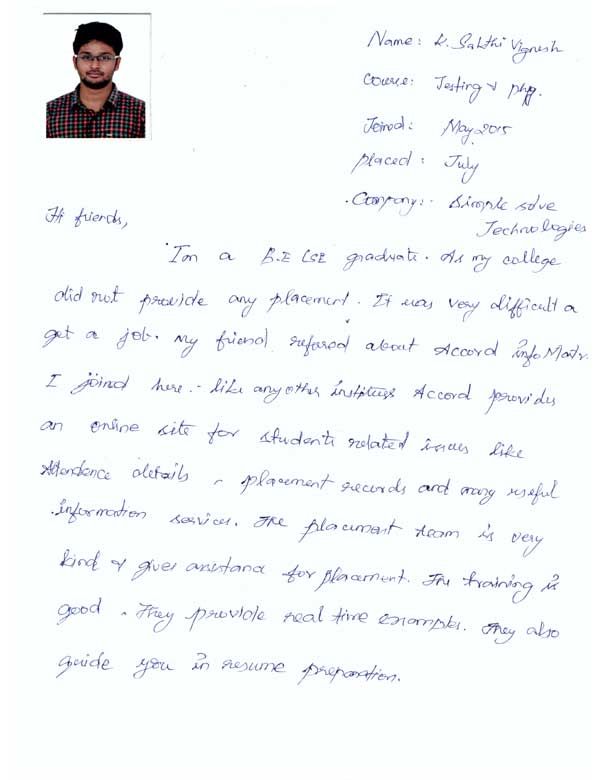 Name: K. Sakthi Vignesh
Course: Testing & php.
Joined: May 2015
placed: July
Company:- Simple solve
Technologies
Hi friends,
I'm a B.E CSE graduate. As my college
did not provide any placement. It was very difficult
get a job. my friend refered about Accord info Matrix
I joined here. like any other institutes Accord provides
an online site for students related issues like
Attendence details, placement records and many useful
information services. The placement team is very
kind & gives assistance for placement. The training is
good. They provide real time examples. They also
guide you in resume preparation.